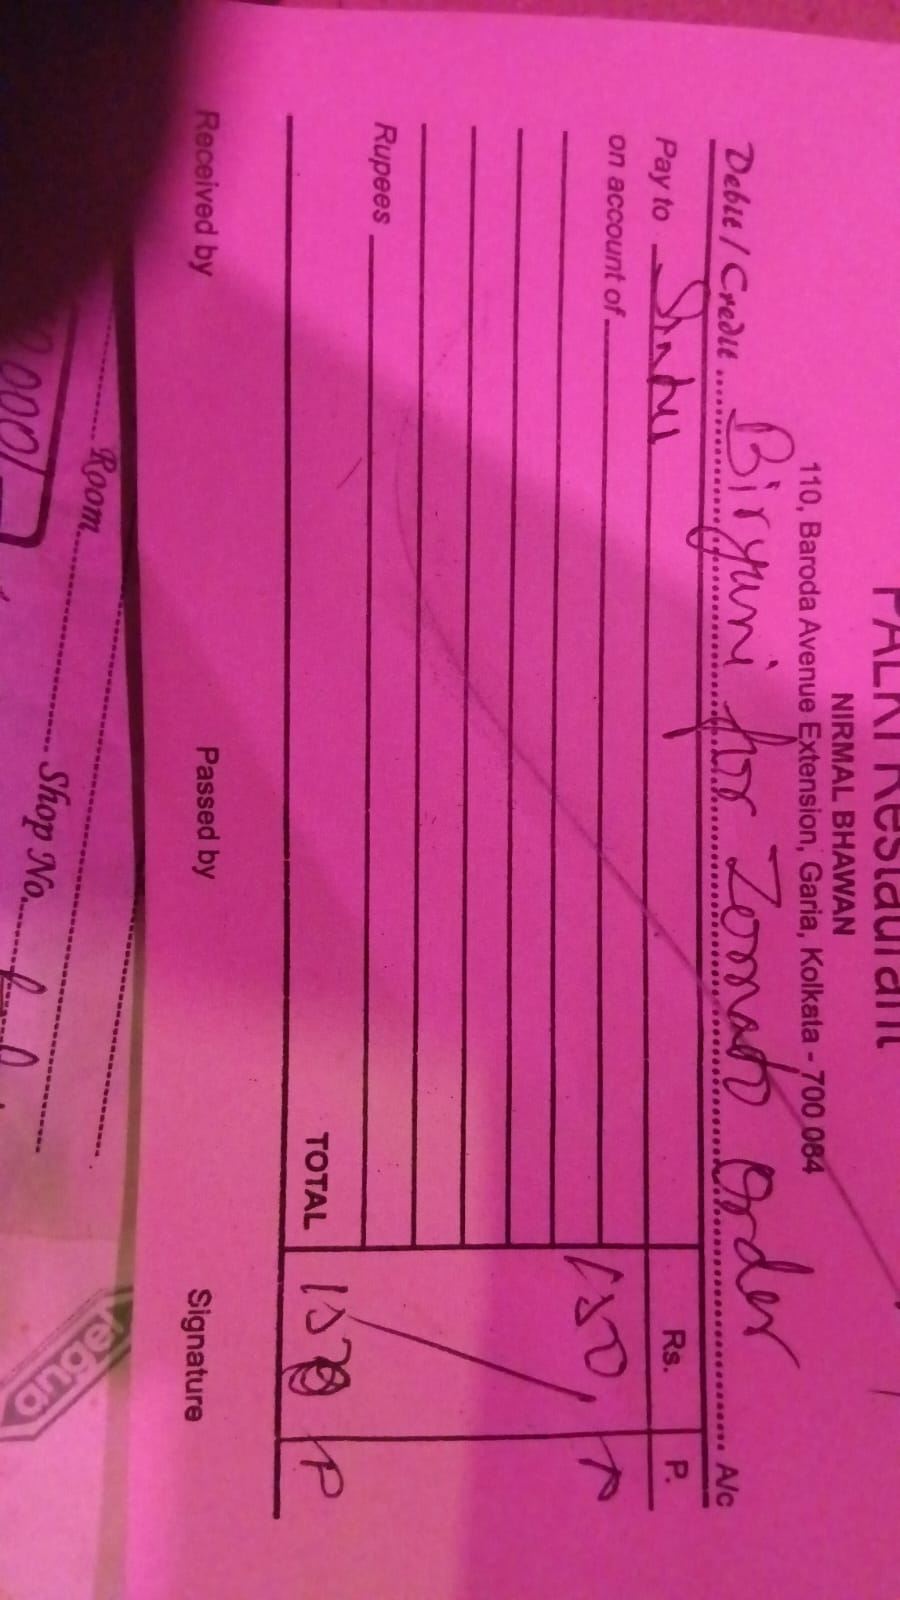 PALKI Restaurant
NIRMAL BHAWAN
110, Baroda Avenue Extension, Garia, Kolkata - 700 084
Debit / Credit Biryani for Zomato Order A/c
Pay to Sintu Rs. P.
on account of 150,
Rupees
TOTAL 150
Received by Passed by Signature
Room
Shop No.
angel